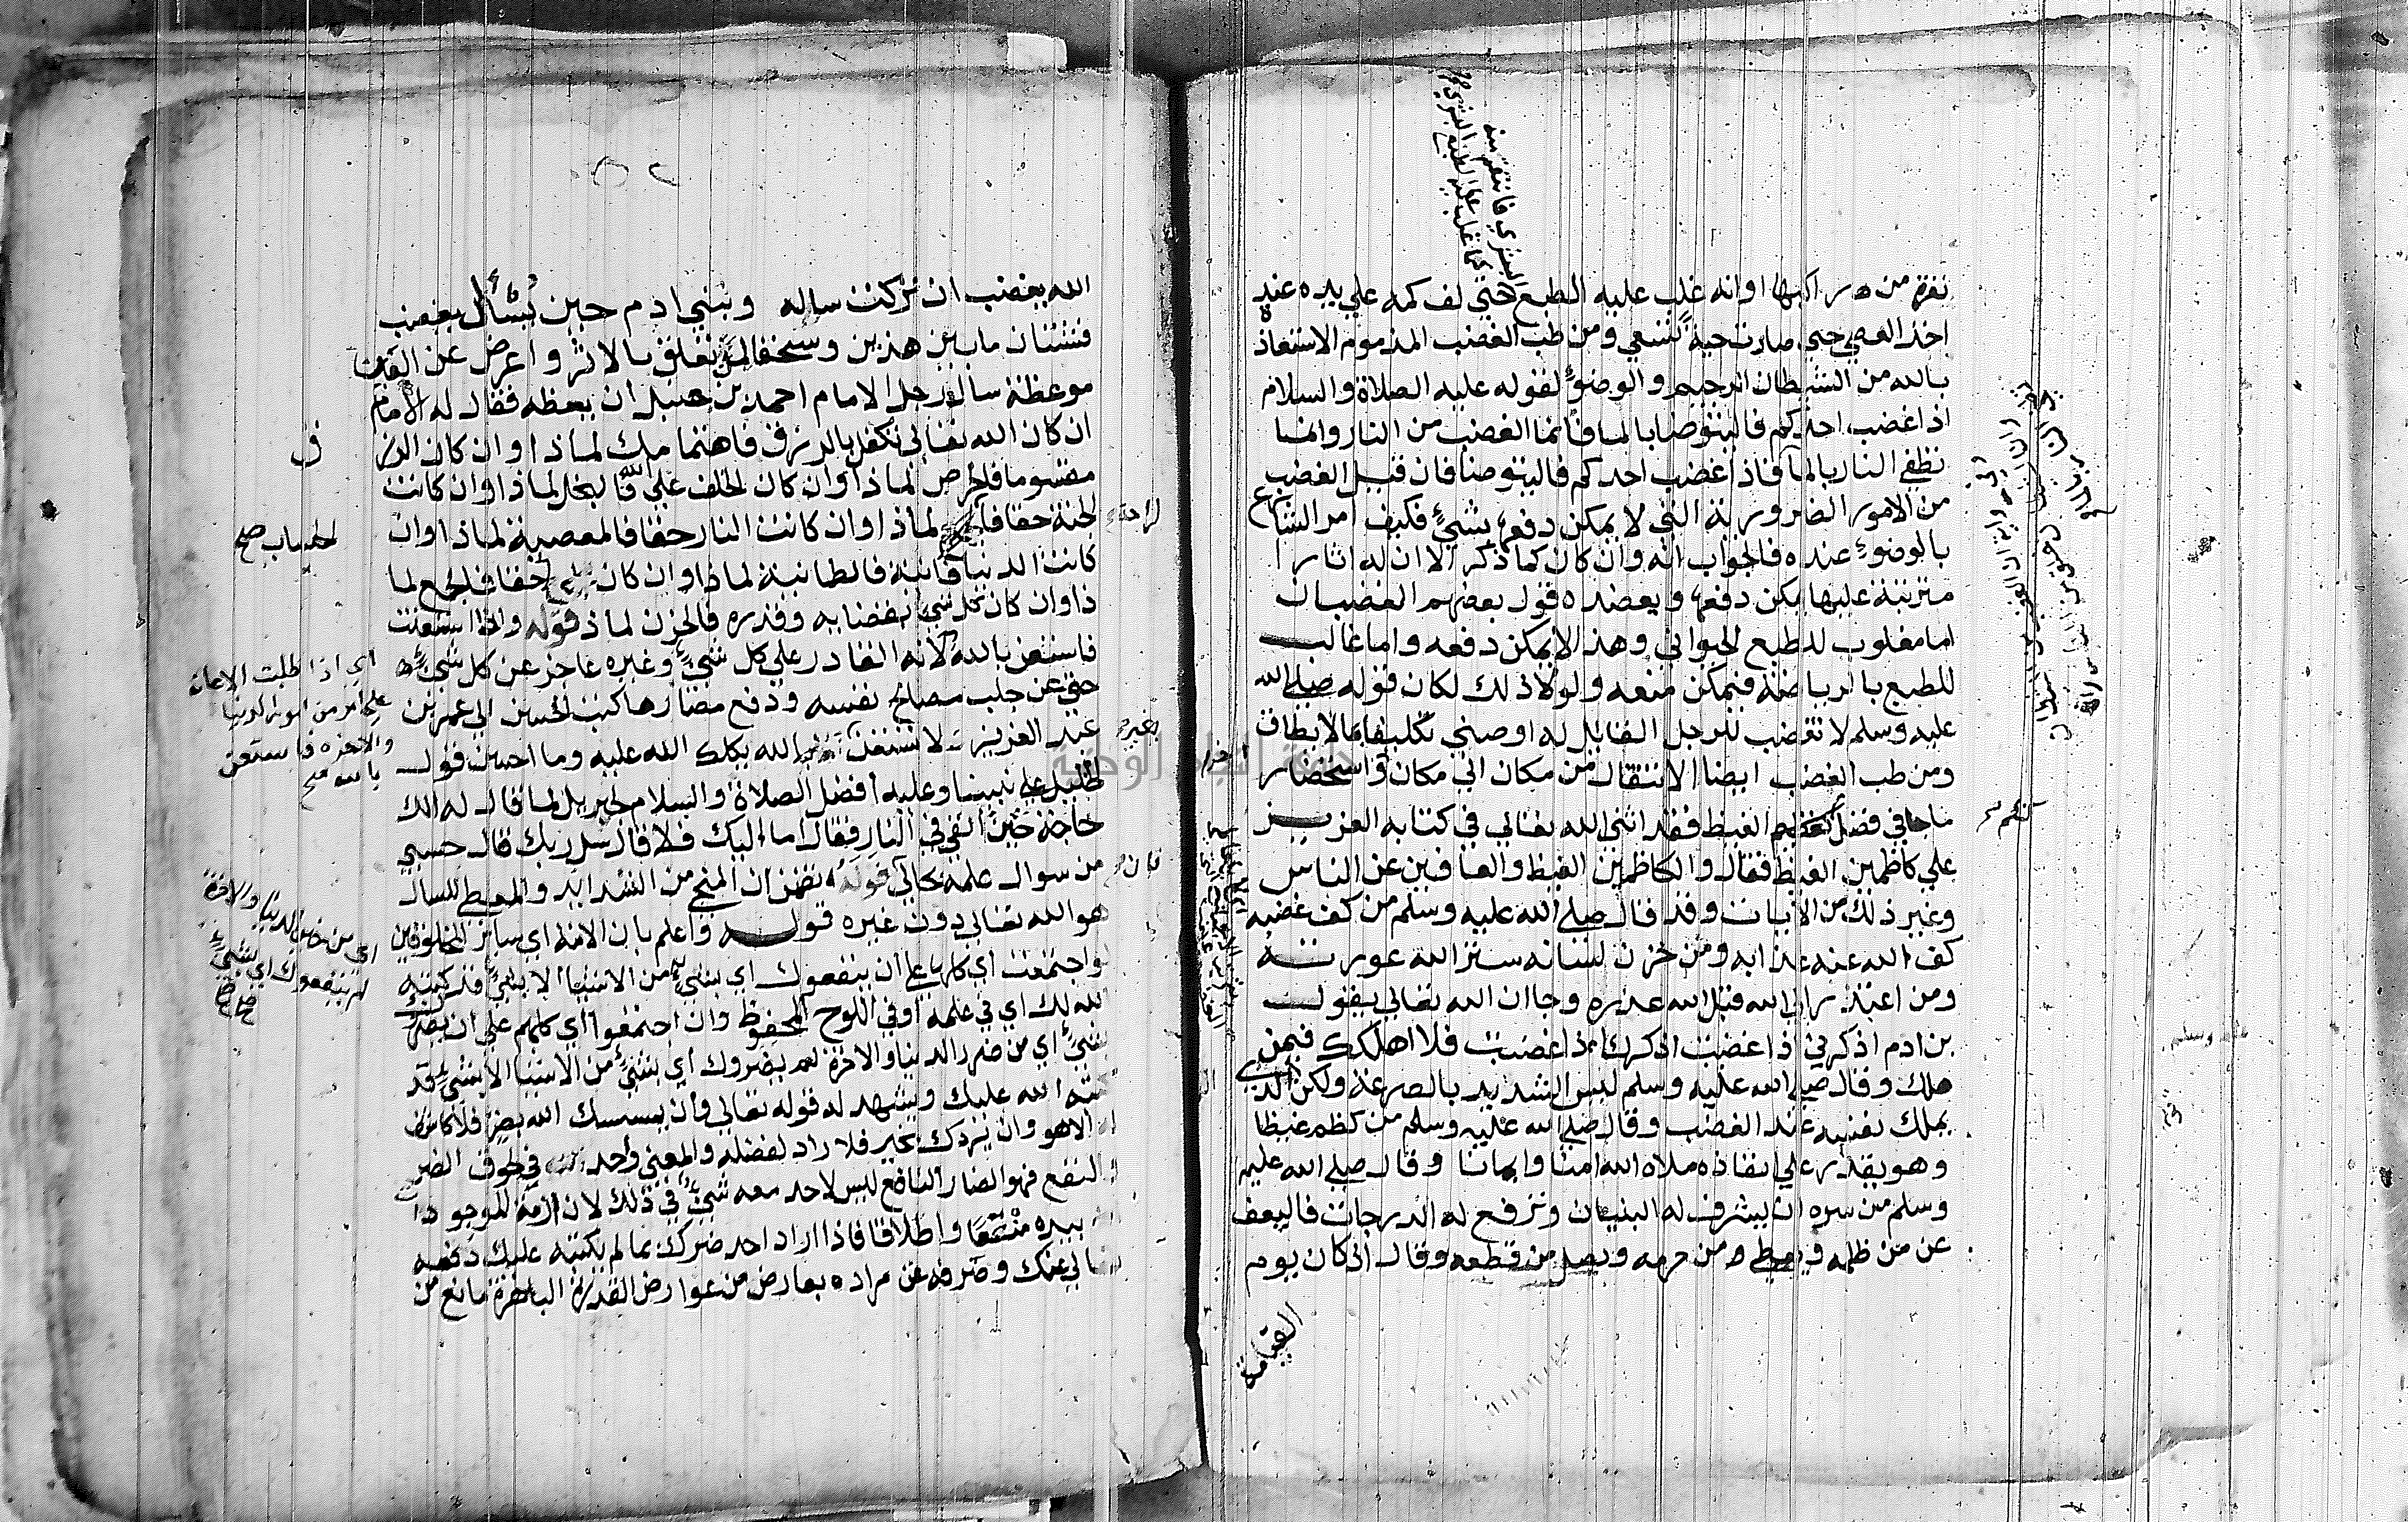 نفرته من ه راكبها اوانه غلب عليه الطبع حتي لف كمه علي يده عند
اخذ العصي حتي صارت حية تسعي ومن طب الغضب المذموم الاستعاذة
بالله من الشيطان الرجيم والوضوء لقوله عليه الصلاة والسلام
اذا غضب احدكم فاليتوضا بالما فانما الغضب من النار وانما
تطفي النار بالما فاذا غضب احدكم فاليتوضا فان قيل الغضب
من الامور الضرورية التي لا يمكن دفعها بشيء فكيف امر الشارع
بالوضوء عنده فالجواب انه وان كان كما ذكر الا ان له اثارا
مترتبة عليها يمكن دفعها ويعضده قول بعضهم الغضبان
اما مغلوب للطبع الحيواني وهذ الا يمكن دفعه واما غالب
للطبع بالرياضة فيمكن منعه ولولا ذلك لكان قوله صلي الله
عليه وسلم لا تغضب للرجل القائل له اوصني تكليفا بما لا يطاق
ومن طب الغضب ايضا الانتقال من مكان الي مكان واستحضار
ماجا في فضل كظم الغيظ فقد اثني الله تعالي في كتابه العزيز
علي كاظمين الغيظ فقال والكاظمين الغيظ والعافين عن الناس
وغير ذلك من الايات وقد قال صلي الله عليه وسلم من كف غضبه
كف الله عنه عذابه ومن خزن لسانه ستر الله عورته
ومن اعتذر الي الله قبل الله عذره وجا ان الله تعالي يقول
بن ادم اذكرني اذا غضبت اذكرك اذا غضبت فلا اهلكك فيمن
هلك وقال صلي الله عليه وسلم ليس الشديد بالصرعة ولكن الذي
يملك نفسه عند الغضب وقال صلي الله عليه وسلم من كظم غيظا
وهو يقدر علي انفاذه ملاه الله امنا وايمانا وقال صلي الله عليه
وسلم من سره ان يشرف له البنيان وترفع له الدرجات فاليعف
عن من ظلمه ويعطي من حرمه ويصل من قطعه وقال اذ كان يوم
القيامة
الله يغضب ان تركت سواله وبني ادم حين يسأل يغضب
فشتان مابين هذين وسحقا لمن تعلق بالاثر واعرض عن العين
موعظة سال رجل الامام احمد بن حنبل ان يعظه فقال له الامام
ان كان الله تعالي تكفل بالرزق فاهتمامك لماذا وان كان الرزق
مقسوما فالحرص لماذا وان كان الخلف علي الله فالبخل لماذا وان كانت
الجنة حقا لماذا وان كانت النار حقا فالمعصية لماذا وان
كانت الدنيا فانية فالطمانينة لماذا وان كان حقا فالجمع لما
ذا وان كان كل شيء بقضايه وقدره فالحزن لماذ قوله واذا استعنت
فاستعن بالله لانه القادر علي كل شيء وغيره عاجز عن كل شيء
حتي عن جلب مصالح نفسه ودفع مضارها كتب الحسن الي عمر بن
عبد العزيز لا تستعن بغير الله يكلك الله عليه وما احسن قول
الخليل علي نبينا وعليه افضل الصلاة والسلام لجبريل لما قال له الك
حاجة حين القي في النار فقال اما اليك فلا قال سل ربك قال حسبي
من سوالي علمه بحالي قوله تضمن ان المنجي من الشدايد والمعطي للسال
هو الله تعالي دون غيره قوله واعلم بان الامة اي ساير المخلوقين
لواجتمعت اي كلها علي ان ينفعوك اي بشيء من الاشيا الا بشيء قد كتبه
الله لك اي في علمه او في اللوح المحفوظ وان اجتمعوا اي كلهم علي ان يضروك
بشيء اي من ضرر الدنيا والاخرة لم يضروك اي بشيء من الاشيا الا بشيء قد
كتبه الله عليك ويشهد له قوله تعالي وان يمسسك الله بضر فلا كاشف
له الا هو وان يردك بخير فلا راد لفضله والمعني واحد في لحوق الضر
والنفع فهو الضار النافع ليس لاحد معه شيء في ذلك لان ازمة الموجودات
بيده منعا واطلاقا فاذا اراد احد ضرك بما لم يكتبه عليك دفعه
تعالي عنك وصرفه عن مراده بعارض من عوارض القدرة الباهرة مانع من
ق
الحساب صح
اي اذا طلبت الاعانة
علي امر من امور الدنيا
والاخره فاستعن
بالله صح
اي من خير الدنيا والاخرة
لم ينفعوك اي بشيء
صح